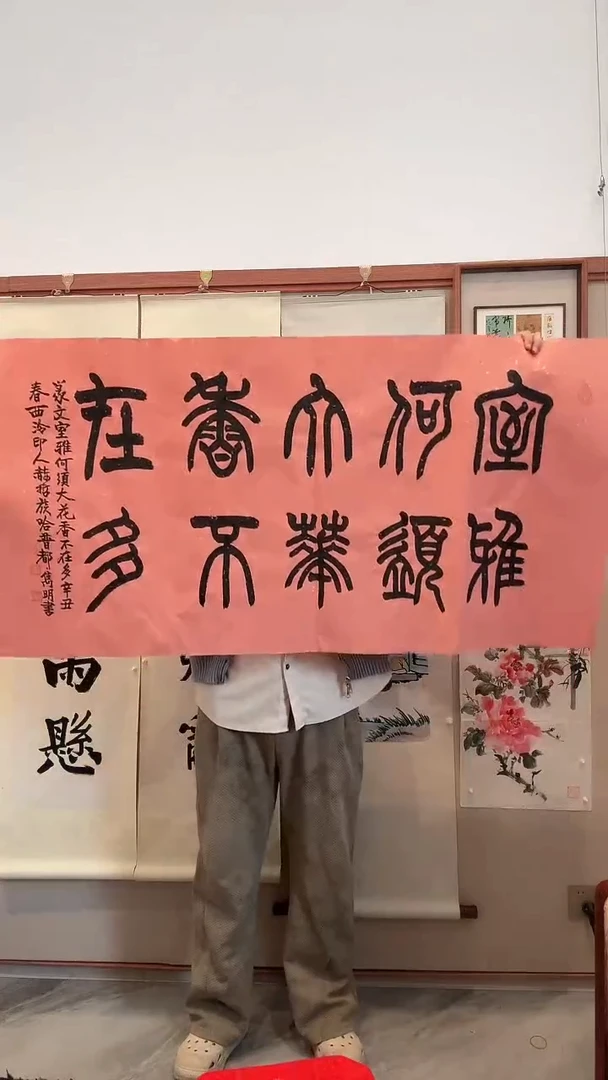 室雅
何須
大華
香不
在多
篆文室雅何須大花香不在多辛丑
春西泠印人赫哲族哈普都雋明書
懸